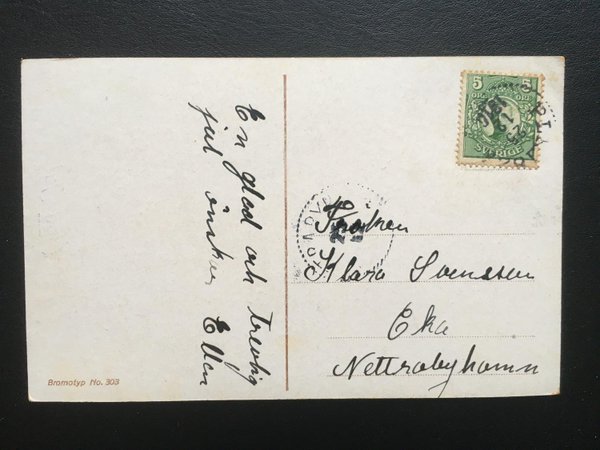 En glad och trevlig
jul önskar
Ellen
Bromotyp No. 303
5 5
SVERIGE
Fröken
Klara Svensson
Eka
Nettrabyhamn